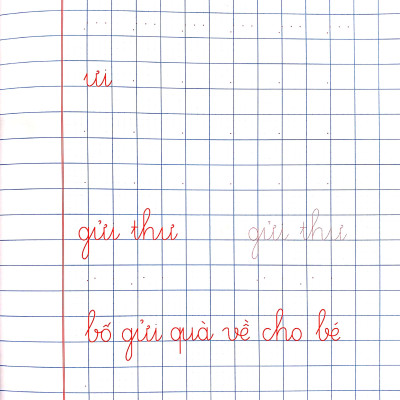 ưi
gửi thư gửi thư
bố gửi quà về cho bé